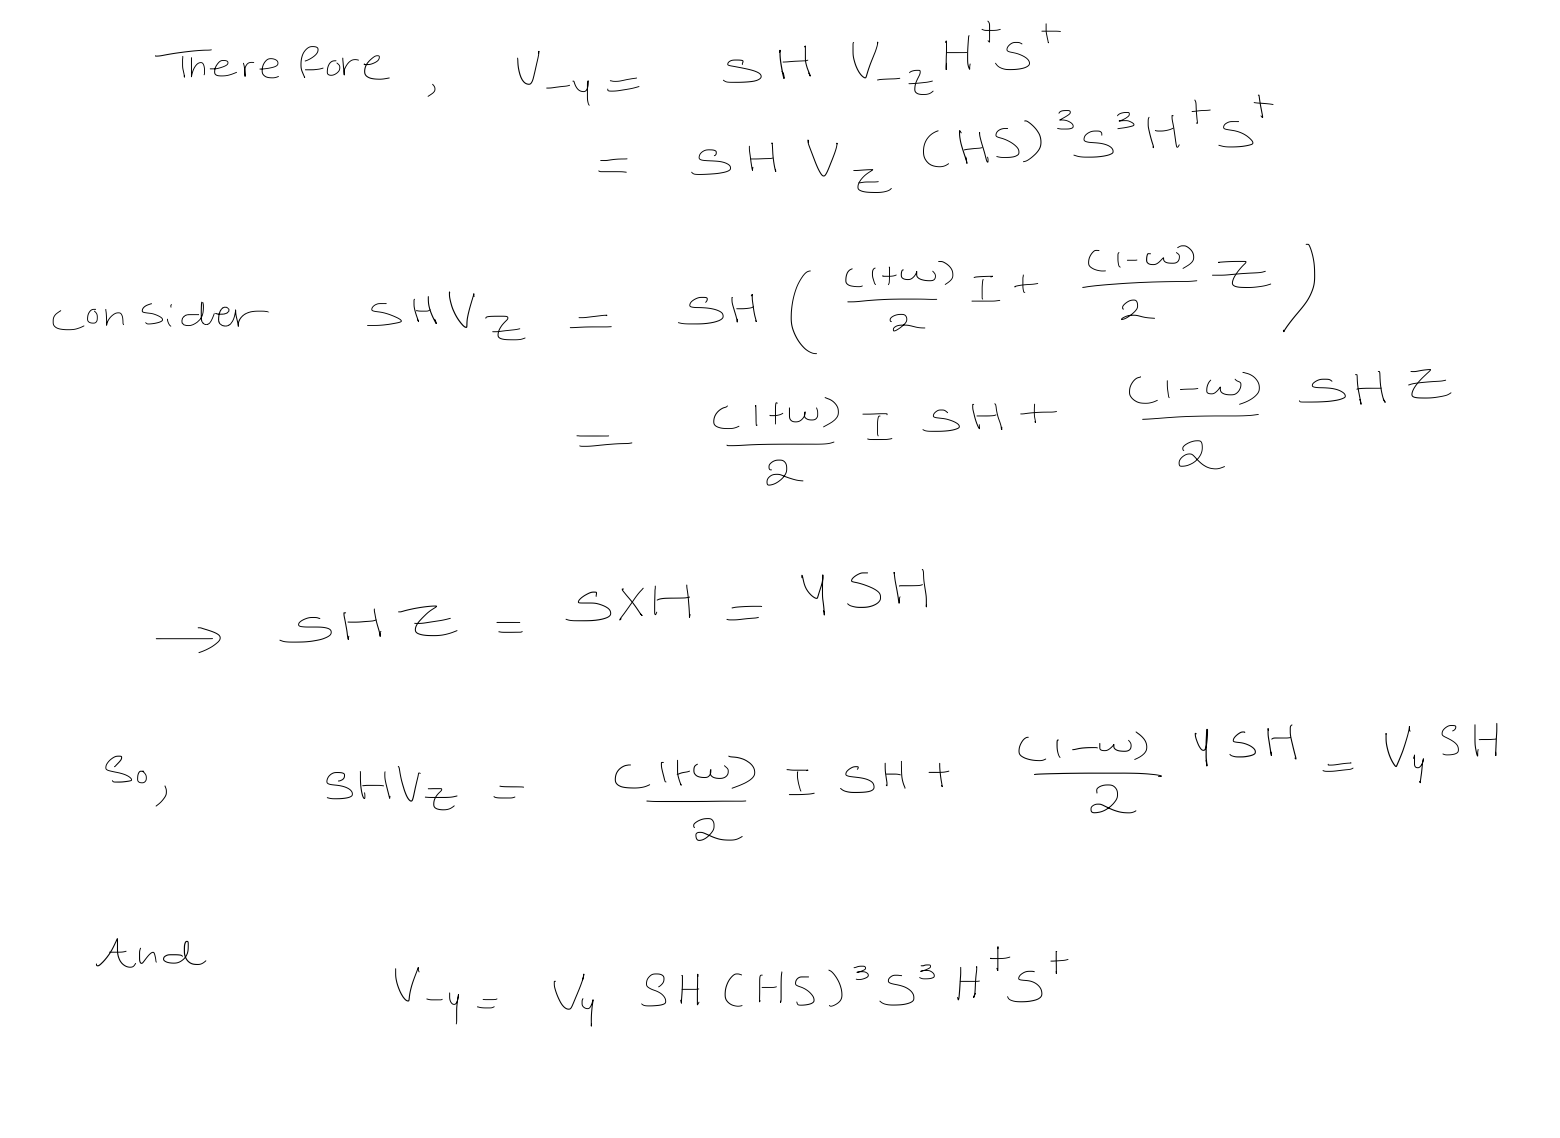 Therefore, V_{-y} = SH V_{-Z} H^†S^†
= SH V_Z (HS)^3 S^3 H^†S^†
consider SHV_Z = SH ( (1+ω)/2 I + (1-ω)/2 Z )
= (1+ω)/2 I SH + (1-ω)/2 SHZ
→ SHZ = SXH = YSH
So, SHV_Z = (1+ω)/2 I SH + (1-ω)/2 YSH = V_y SH
And V_{-y} = V_y SH (HS)^3 S^3 H^†S^†